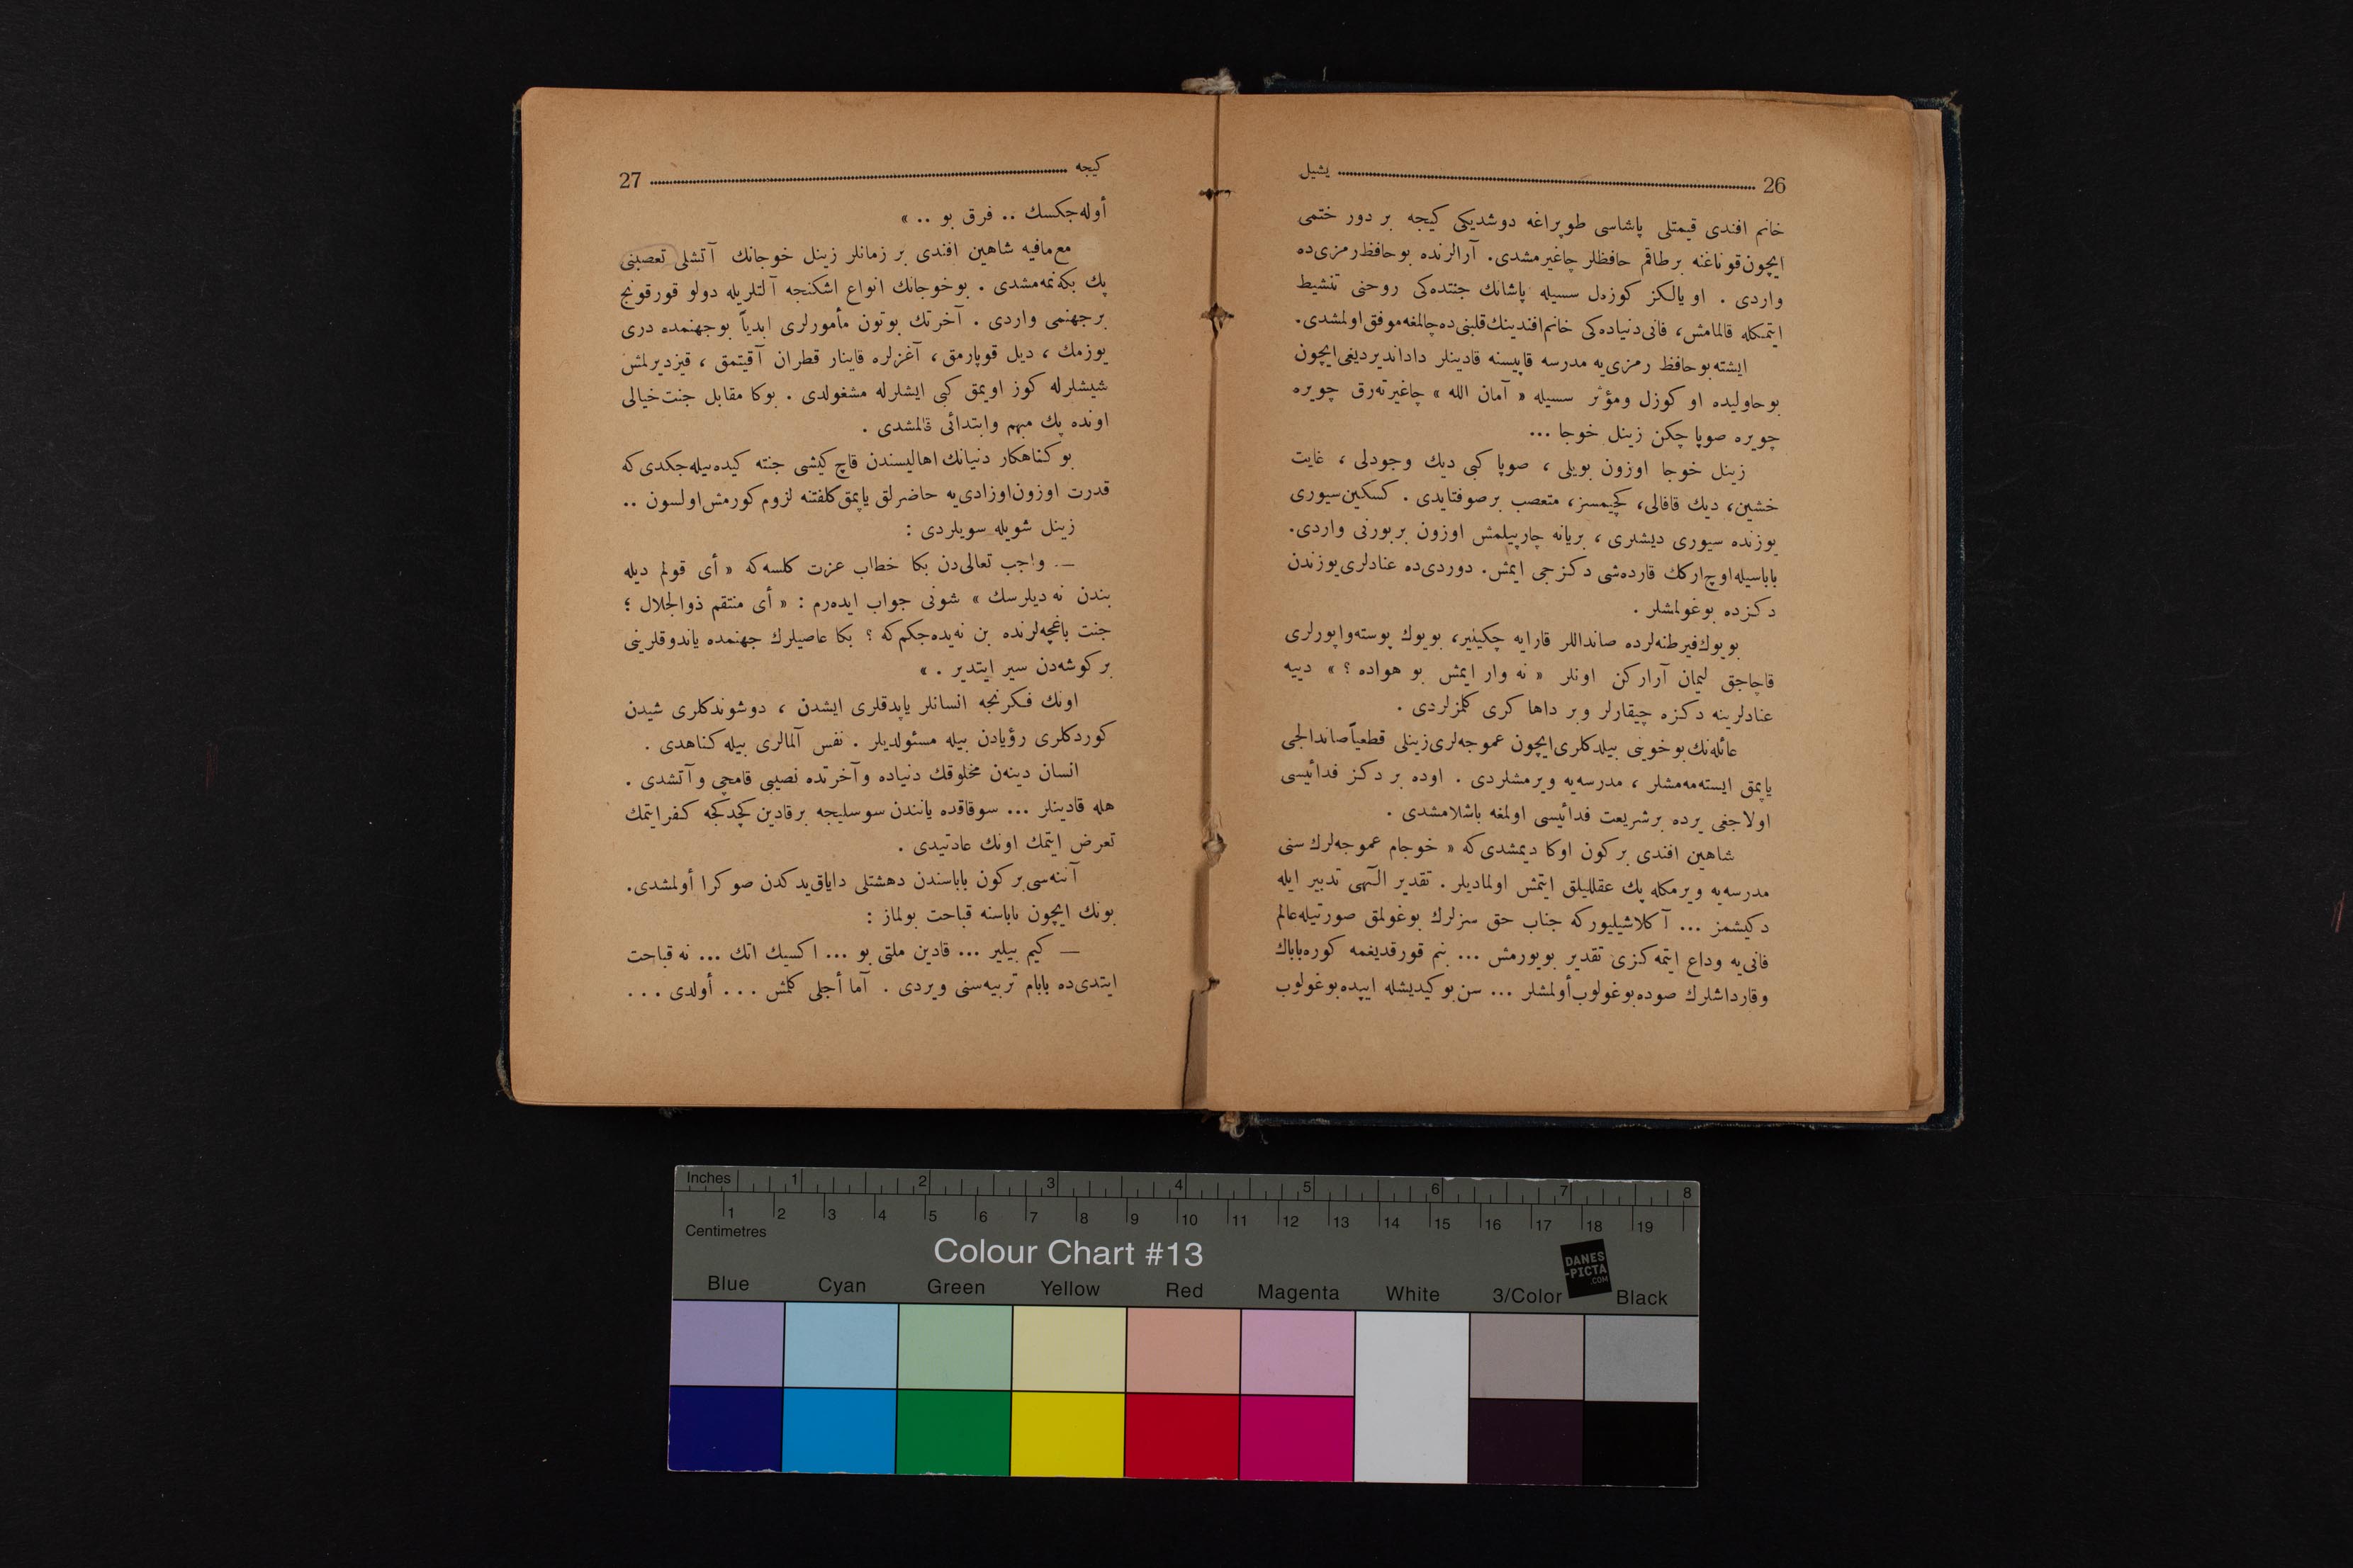 26 يشيل
خانم افندى قيمتلى پاشاسى طوپراغه دوشديكى كيجه بر دور ختمى
ايچون قوناغنه بر طاقم حافظلر چاغيرمشدى. آرالرنده بو حافظ رمزى ده
واردى . او يالكز كوزه‌ل سسيله پاشانك جنتده‌كى روحنى تنشيط
ايتمكله قالمامش، فانى دنياده‌كى خانم افندينك قلبنى ده چالمغه موفق اولمشدى.
ايشته بو حافظ رمزى يه مدرسه قاپيسنه قادينلر دادانديرديغى ايچون
بو حاوليده او كوزل ومؤثر سسيله « آمان الله » چاغيرته‌رق چويره
چويره صوپا چكن زينل خوجا ...
زينل خوجا اوزون بويلى ، صوپا كبى ديك وجودلى ، غايت
خشين، ديك قافالى، كچيمسز، متعصب بر صوفتايدى . كسكين سيورى
يوزنده سيورى ديشلرى ، بريانه چارپيلمش اوزون بر بورنى واردى.
باباسيله اوچ اركك قارده‌شى دكزجى ايمش. دوردى ده عنادلرى يوزندن
دكزده بوغولمشلر .
بويوك فيرطنه‌لرده صانداللر قارايه چكيلير، بويوك پوسته واپورلرى
قاچاجق ليمان آراركن اونلر « نه وار ايمش بو هواده ؟ » دييه
عنادلرينه دكزه چيقارلر وبر داها كرى كلمزلردى .
عائله‌نك بو خوينى بيلدكلرى ايچون عموجه‌لرى زينلى قطعياً صاندالجى
ياپمق ايسته‌مه‌مشلر ، مدرسه‌يه ويرمشلردى . اوده بر دكز فدائيسى
اولاجغى يرده بر شريعت فدائيسى اولمغه باشلامشدى .
شاهين افندى بر كون اوكا ديمشدى كه « خوجام عموجه‌لرك سنى
مدرسه‌يه ويرمكله پك عقلليلق ايتمش اولماديلر . تقدير الٓهى تدبير ايله
دكيشمز ... آكلاشيليوركه جناب حق سزلرك بوغولمق صورتيله عالم
فانى يه وداع ايتمه‌كزى تقدير بويورمش ... بنم قورقديغمه كوره باباك
وقارداشلرك صوده بوغولوب أولمشلر ... سن بو كيديشله ايپده بوغولوب
كيجه 27
أوله‌جكسك .. فرق بو .. »
مع مافيه شاهين افندى بر زمانلر زينل خوجانك آتشلى تعصبنى
پك بكه‌نمه‌مشدى . بو خوجانك انواع اشكنجه آلتلريله دولو قورقونج
بر جهنمى واردى . آخرتك بوتون مأمورلرى ابدياً بو جهنمده درى
يوزمك ، ديل قوپارمق، آغزلره قاينار قطران آقيتمق ، قيزديرلمش
شيشلرله كوز اويمق كبى ايشلرله مشغولدى . بوكا مقابل جنت خيالى
اونده پك مبهم وابتدائى قالمشدى .
بو كناهكار دنيانك اهاليسندن قاچ كيشى جنته كيده‌بيله‌جكدى كه
قدرت اوزون اوزادى يه حاضرلق ياپمق كلفتنه لزوم كورمش اولسون ..
زينل شويله سويلردى :
— واجب تعالى دن بكا خطاب عزت كلسه كه « أى قولم ديله
بندن نه ديلرسك » شونى جواب ايده‌رم : « أى منتقم ذوالجلال ؛
جنت باغچه‌لرنده بن نه‌يده‌جكم كه ؟ بكا عاصيلرك جهنمده ياندوقلرينى
بر كوشه‌دن سير ايتدير . »
اونك فكرنجه انسانلر ياپدقلرى ايشدن ، دوشوندكلرى شيدن
كوردكلرى رؤيادن بيله مسئولديلر . نفس آلمالرى بيله كناهدى .
انسان دينه‌ن مخلوقك دنياده وآخرتده نصيبى قامچى وآتشدى .
هله قادينلر ... سوقاقده يانندن سوسليجه بر قادين كچدكجه كفر ايتمك
تعرض ايتمك اونك عادتيدى .
آننه‌سى بر كون باباسندن دهشتلى داياق يدكدن صوكرا أولمشدى.
بونك ايچون باباسنه قباحت بولماز :
— كيم بيلير ... قادين ملتى بو ... اكسيك اتك ... نه قباحت
ايتدى ده بابام تربيه‌سنى ويردى . آما أجلى كلمش ... أولدى ...
Inches 1 2 3 4 5 6 7 8
1 2 3 4 5 6 7 8 9 10 11 12 13 14 15 16 17 18 19
Centimetres
Colour Chart #13
DANES
-PICTA
.COM
Blue Cyan Green Yellow Red Magenta White 3/Color Black